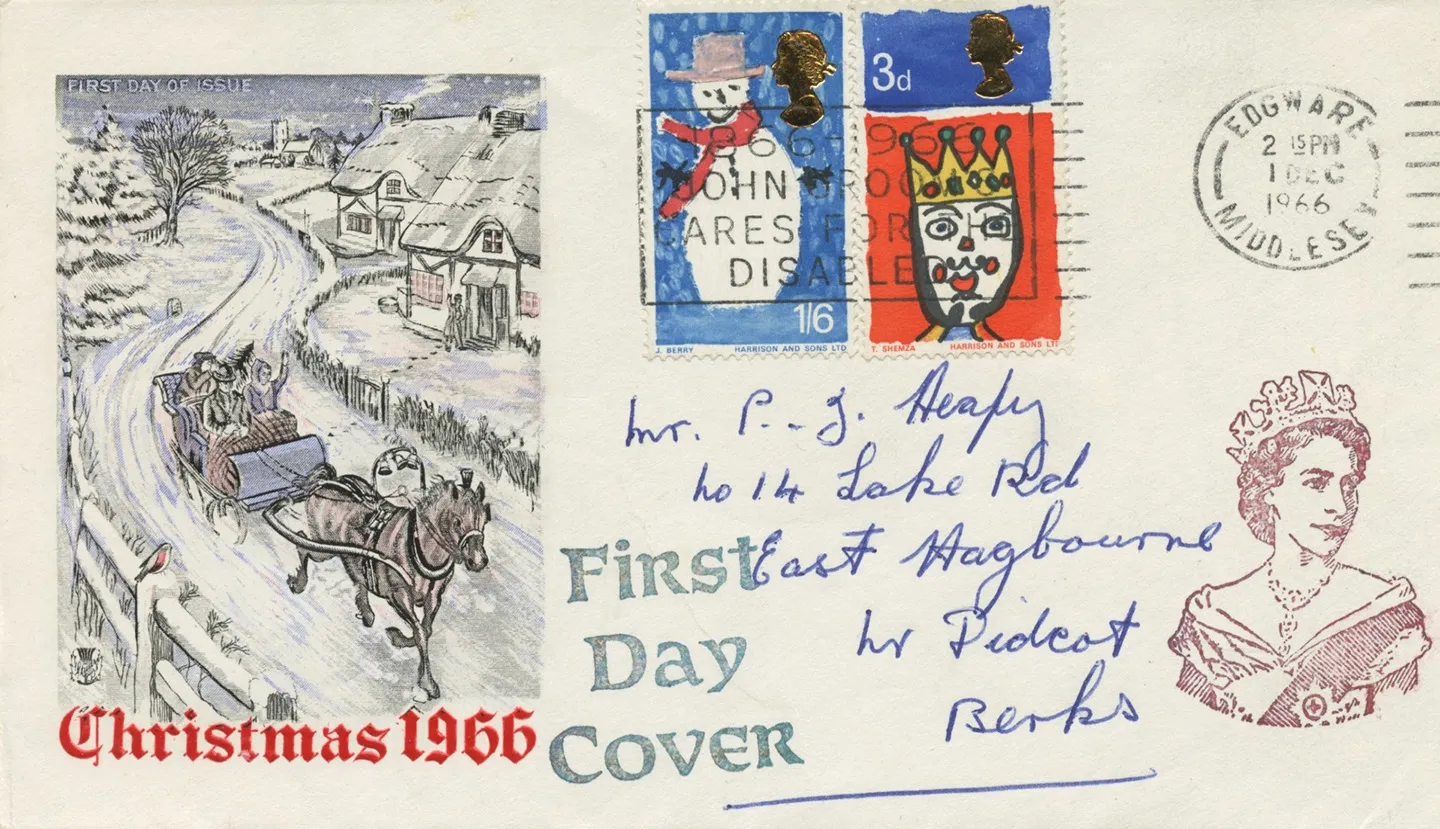 FIRST DAY OF ISSUE
3d
1/6
J. BERRY HARRISON AND SONS LTD
T. SHEMZA HARRISON AND SONS LT
1866-1966
JOHN GROO
CARES FOR THE
DISABLED
EDGWARE
2 15 PM
1 DEC
1966
MIDDLESEX
Mr. P. J. Heapy
No 14 Lake Rd
East Hagbourne
Nr Didcot
Berks
First
Day
Cover
Christmas 1966